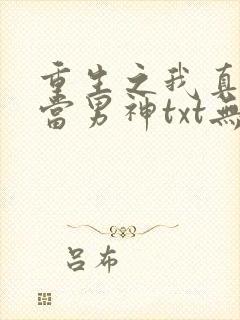 重生之我真
當男神txt無
呂布